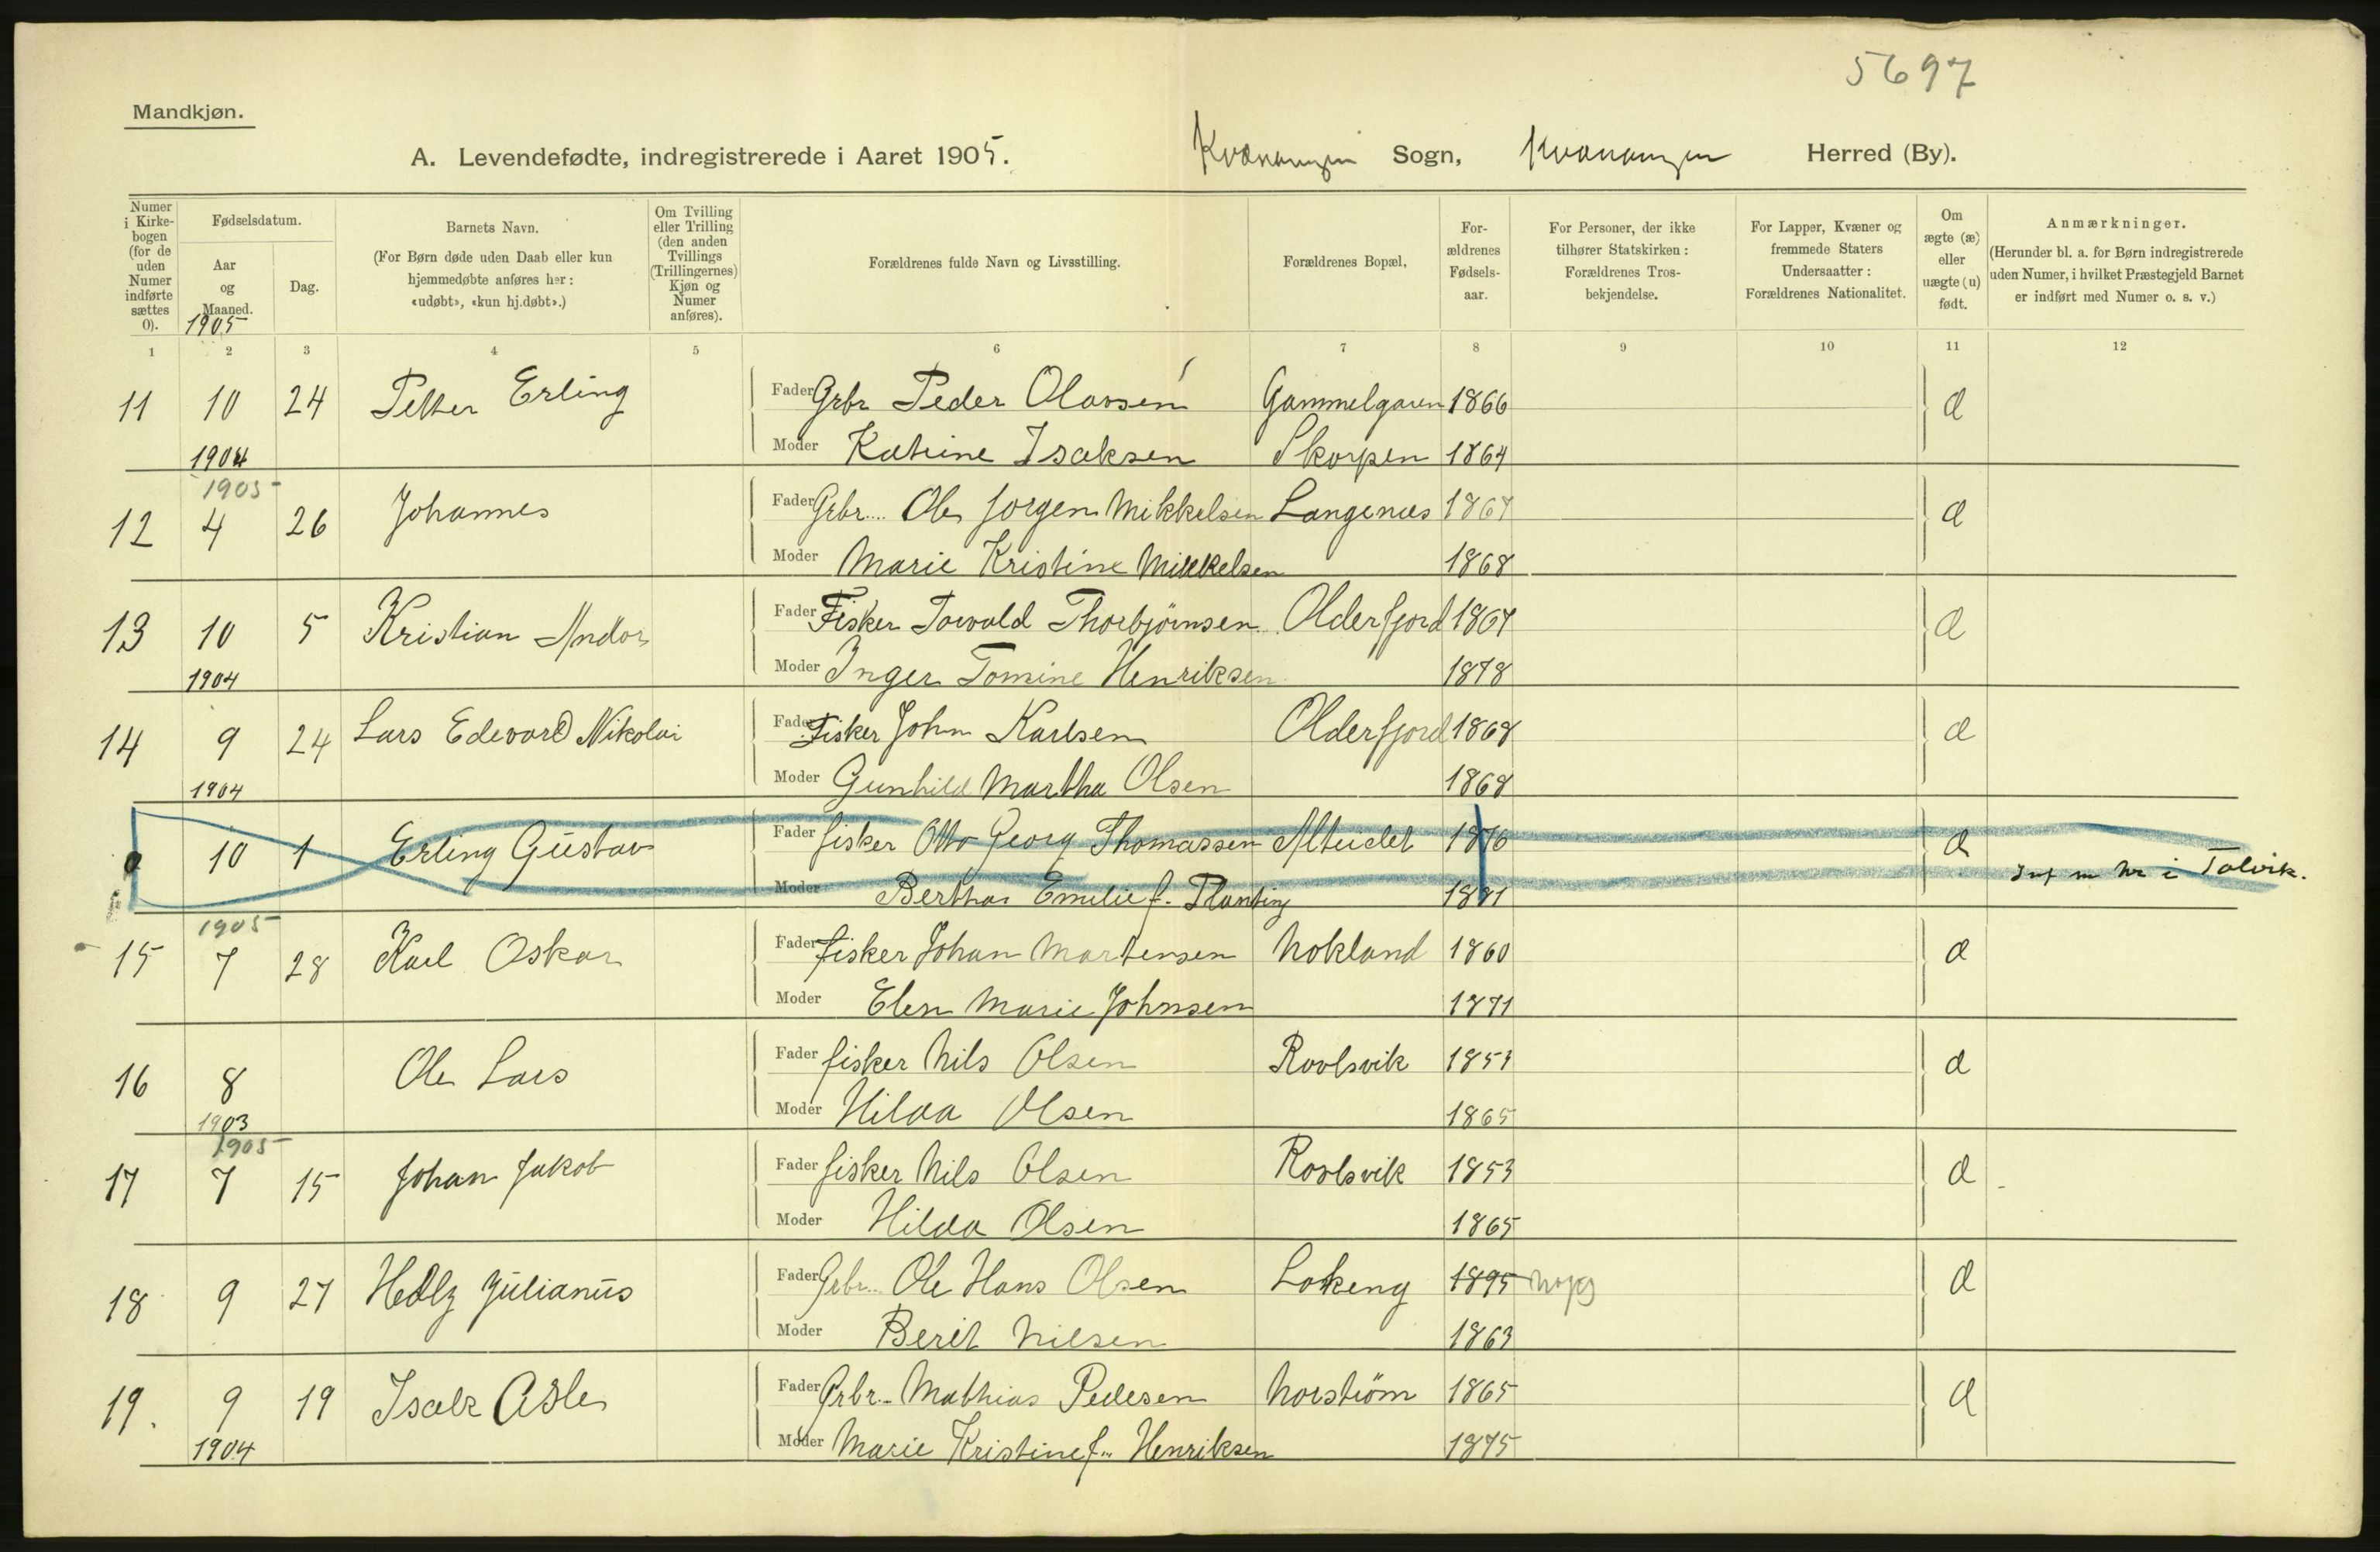 5697
Mandkjøn.
A. Levendefødte, indregistrerede i Aaret 1905.
Kvænangen Sogn, Kvænangen Herred (By).
Numer i Kirkebogen (for de uden Numer indførte sættes 0).
Fødselsdatum.
Aar og Maaned.
Dag.
Barnets Navn.
(For Børn døde uden Daab eller kun hjemmedøbte anføres her: «udøbt», «kun hj.døbt».)
Om Tvilling eller Trilling (den anden Tvillings (Trillingernes) Kjøn og Numer anføres).
Forældrenes fulde Navn og Livsstilling.
Forældrenes Bopæl,
Forældrenes Fødselsaar.
For Personer, der ikke tilhører Statskirken: Forældrenes Trosbekjendelse.
For Lapper, Kvæner og fremmede Staters Undersaatter: Forældrenes Nationalitet.
Om ægte (æ) eller uægte (u) født.
Anmærkninger.
(Herunder bl. a. for Børn indregistrerede uden Numer, i hvilket Præstegjeld Barnet er indført med Numer o. s. v.)
1905
1 2 3 4 5 6 7 8 9 10 11 12
11 10 24 Petter Erling Fader Grbr Peder Olavsen Gammelgaren 1866 æ
1904 Moder Katrine Isaksen Skorpen 1864
1905
12 4 26 Johannes Fader Grbr. Ole Jørgen Mikkelsen Langenæs 1867 æ
Moder Marie Kristine Mikkelsen 1868
13 10 5 Kristian Andor Fader Fisker Torvald Thorbjørnsen Olderfjord 1867 æ
1904 Moder Inger Tomine Henriksen 1878
14 9 24 Lars Edevard Nikolai Fader Fisker John Karlsen Olderfjord 1868 æ
1904 Moder Gunhild Martha Olsen 1868
0 10 1 Erling Gustav Fader fisker Otto Georg Thomassen Alteidet 1876 æ
Moder Bertha Emilie f. Planting 1881 Inf m Nr i Talvik.
1905
15 7 28 Karl Oskar Fader fisker Johan Martensen Nokland 1860 æ
Moder Elen Marie Johnsen 1871
16 8 Ole Lars Fader fisker Nils Olsen Rovlsvik 1853 æ
1903 Moder Hilda Olsen 1865
1905
17 7 15 Johan Jakob Fader fisker Nils Olsen Rovlsvik 1853 æ
Moder Hilda Olsen 1865
18 9 27 Hedly Julianus Fader Grbr. Ole Hans Olsen Løkeng 1895 æ
Moder Berit Nilsen 1863
19. 9 19 Isak Asle Fader Grbr. Mathias Pedesen Norstrøm 1865 æ
1904 Moder Marie Kristine f. Henriksen 1875